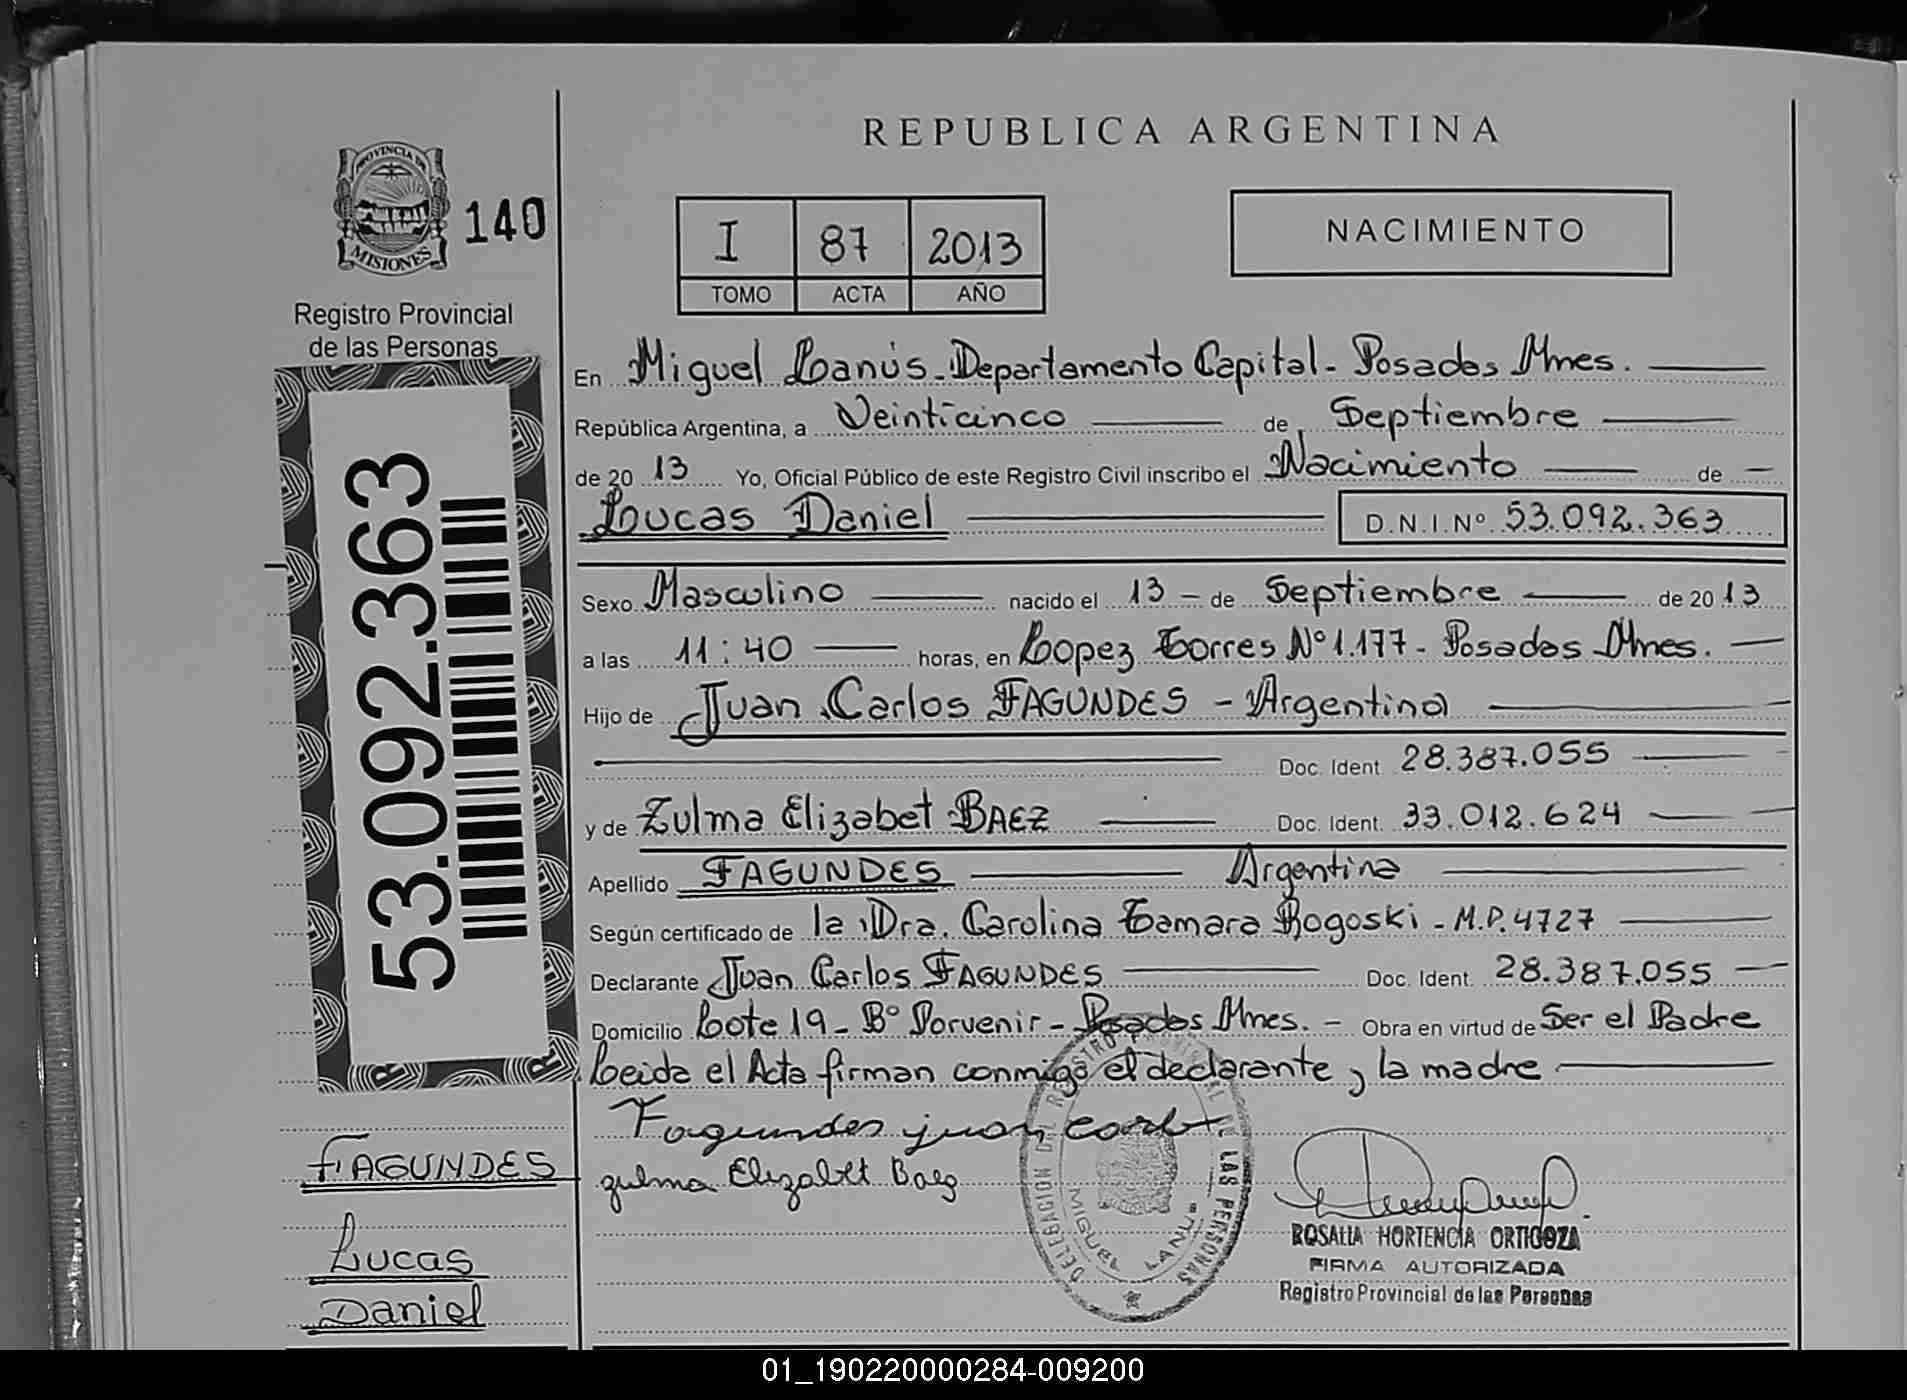 REPUBLICA ARGENTINA
PROVINCIA DE
MISIONES
140
Registro Provincial
de las Personas
I 87 2013
TOMO ACTA AÑO
NACIMIENTO
En Miguel Lanús - Departamento Capital - Posadas Mnes.
República Argentina, a Veinticinco de Septiembre
de 20 13 Yo, Oficial Público de este Registro Civil inscribo el Nacimiento de
Lucas Daniel D.N.I. Nº 53.092.363
Sexo Masculino nacido el 13 - de Septiembre de 20 13
a las 11:40 horas, en Lopez Torres Nº 1.177 - Posadas Mnes.
Hijo de Juan Carlos FAGUNDES - Argentina
Doc. Ident 28.387.055
y de Zulma Elizabet BAEZ Doc. Ident. 33.012.624
Apellido FAGUNDES Argentina
Según certificado de la Dra. Carolina Tamara Rogoski - M.P. 4727
Declarante Juan Carlos FAGUNDES Doc. Ident. 28.387.055
Domicilio Lote 19 - Bº Porvenir - Posadas Mnes. - Obra en virtud de Ser el Padre
Leida el Acta firman conmigo el declarante y la madre
Fagundes juan carlos
zulma Elizabet Baez
53.092.363
FAGUNDES
Lucas
Daniel
DELEGACION DEL REGISTRO PROVINCIAL DE LAS PERSONAS
MIGUEL LANUS
ROSALIA HORTENCIA ORTIGOZA
FIRMA AUTORIZADA
Registro Provincial de las Personas
01_190220000284-009200